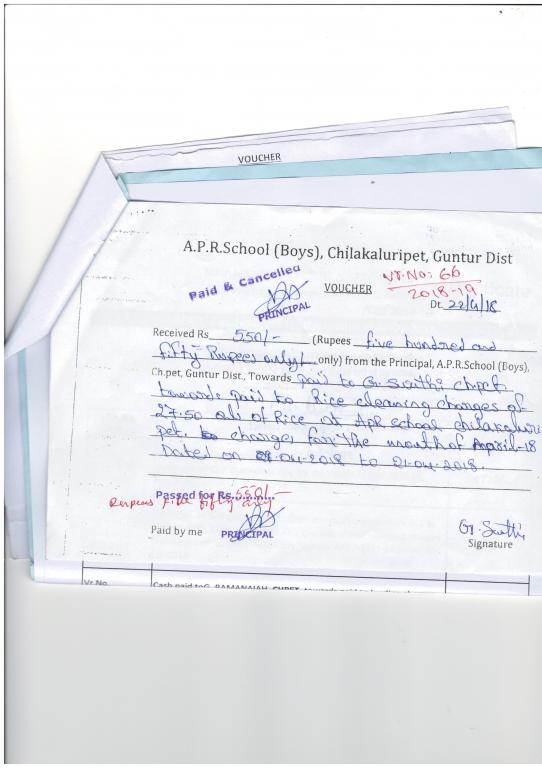 VOUCHER
A.P.R.School (Boys), Chilakaluripet, Guntur Dist
Paid & Cancelled
PRINCIPAL
VOUCHER
Vr.No: 66
2018-19
Dt. 22/4/18
Received Rs 550/- (Rupees five hundred and
fifty Rupees only/- only) from the Principal, A.P.R.School (Boys),
Ch.pet, Guntur Dist., Towards paid to G. Swathi chpet
towards paid to Rice cleaning charges of
27.50 of Rice at Apr school chilakaluri
pet. charges for The month of April-18
Dated on 04-2018 to 21-04-2018.
Passed for Rs. 550/-
Rupees five fifty only
Paid by me
PRINCIPAL
G. Swathi
Signature
Vr No
Cash paid to G. RAMANAIAH, CHPET,